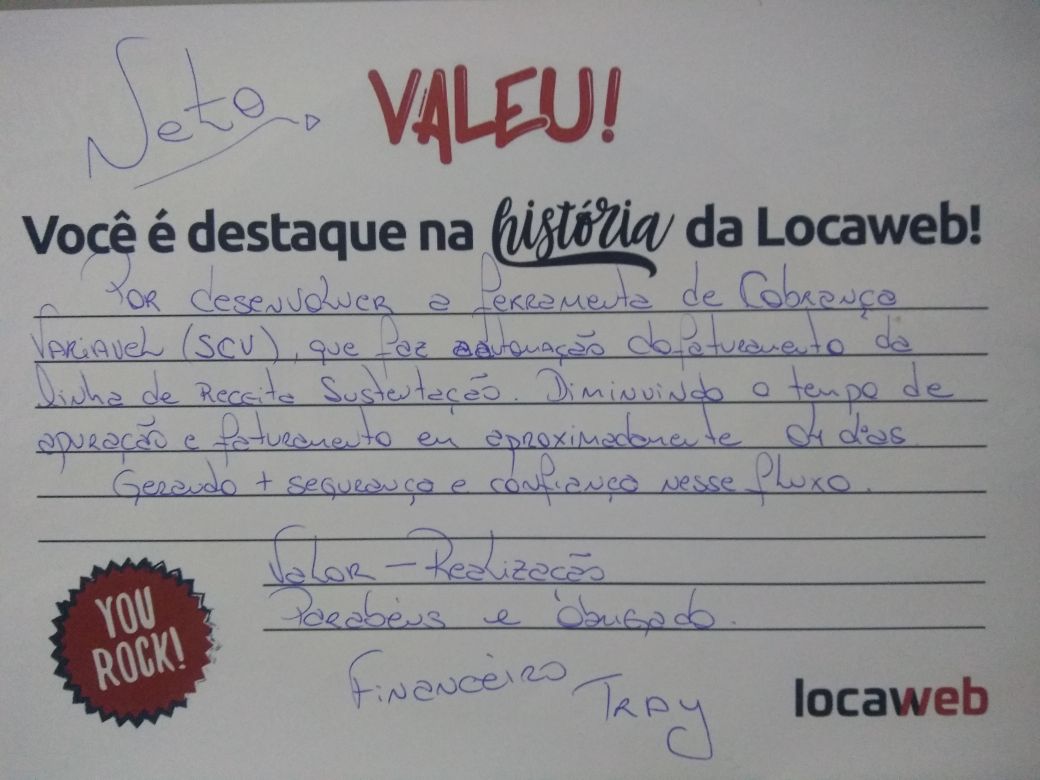 Neto
VALEU!
Você é destaque na história da Locaweb!
Por desenvolver a ferramenta de Cobrança
Variavel (SCV), que faz automação do faturamento da
linha de Receita Sustentação. Diminuindo o tempo de
apuração e faturamento em aproximadamente 04 dias.
Gerando + segurança e confiança nesse fluxo.
Valor - Realização
Parabéns e Obrigado.
YOU
ROCK!
Financeiro Tray
locaweb